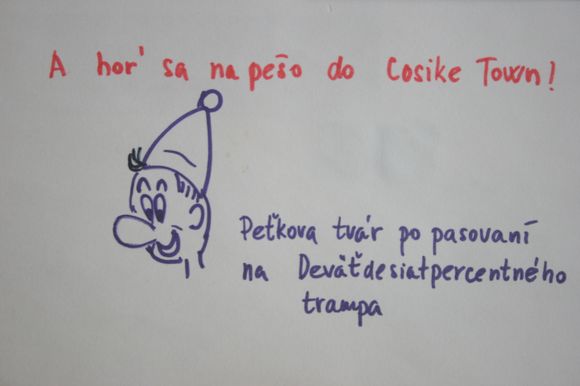 A hor' sa napešo do Cosike Town!
Peťkova tvár po pasovaní
na Deväťdesiatpercentného
trampa